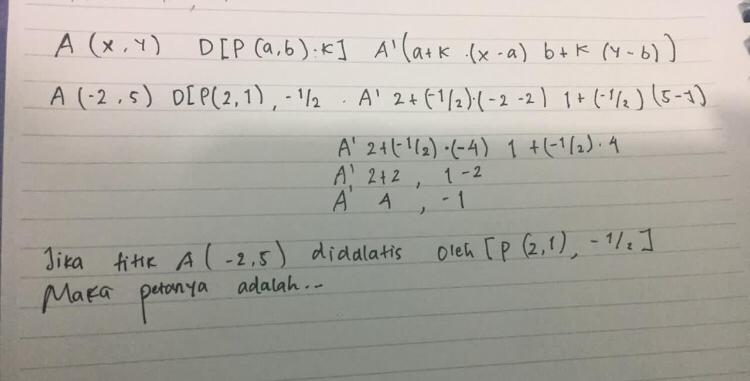 A (x, y) D[P(a,b).K] A'(a+k.(x-a) b+k (y-b))
A (-2,5) D[P(2,1), -1/2 . A' 2+(-1/2).(-2-2) 1+(-1/2)(5-1)
A' 2+(-1/2).(-4) 1+(-1/2).4
A' 2+2, 1-2
A' 4, -1
Jika titik A(-2,5) didalatis oleh [P(2,1), -1/2]
Maka petanya adalah...